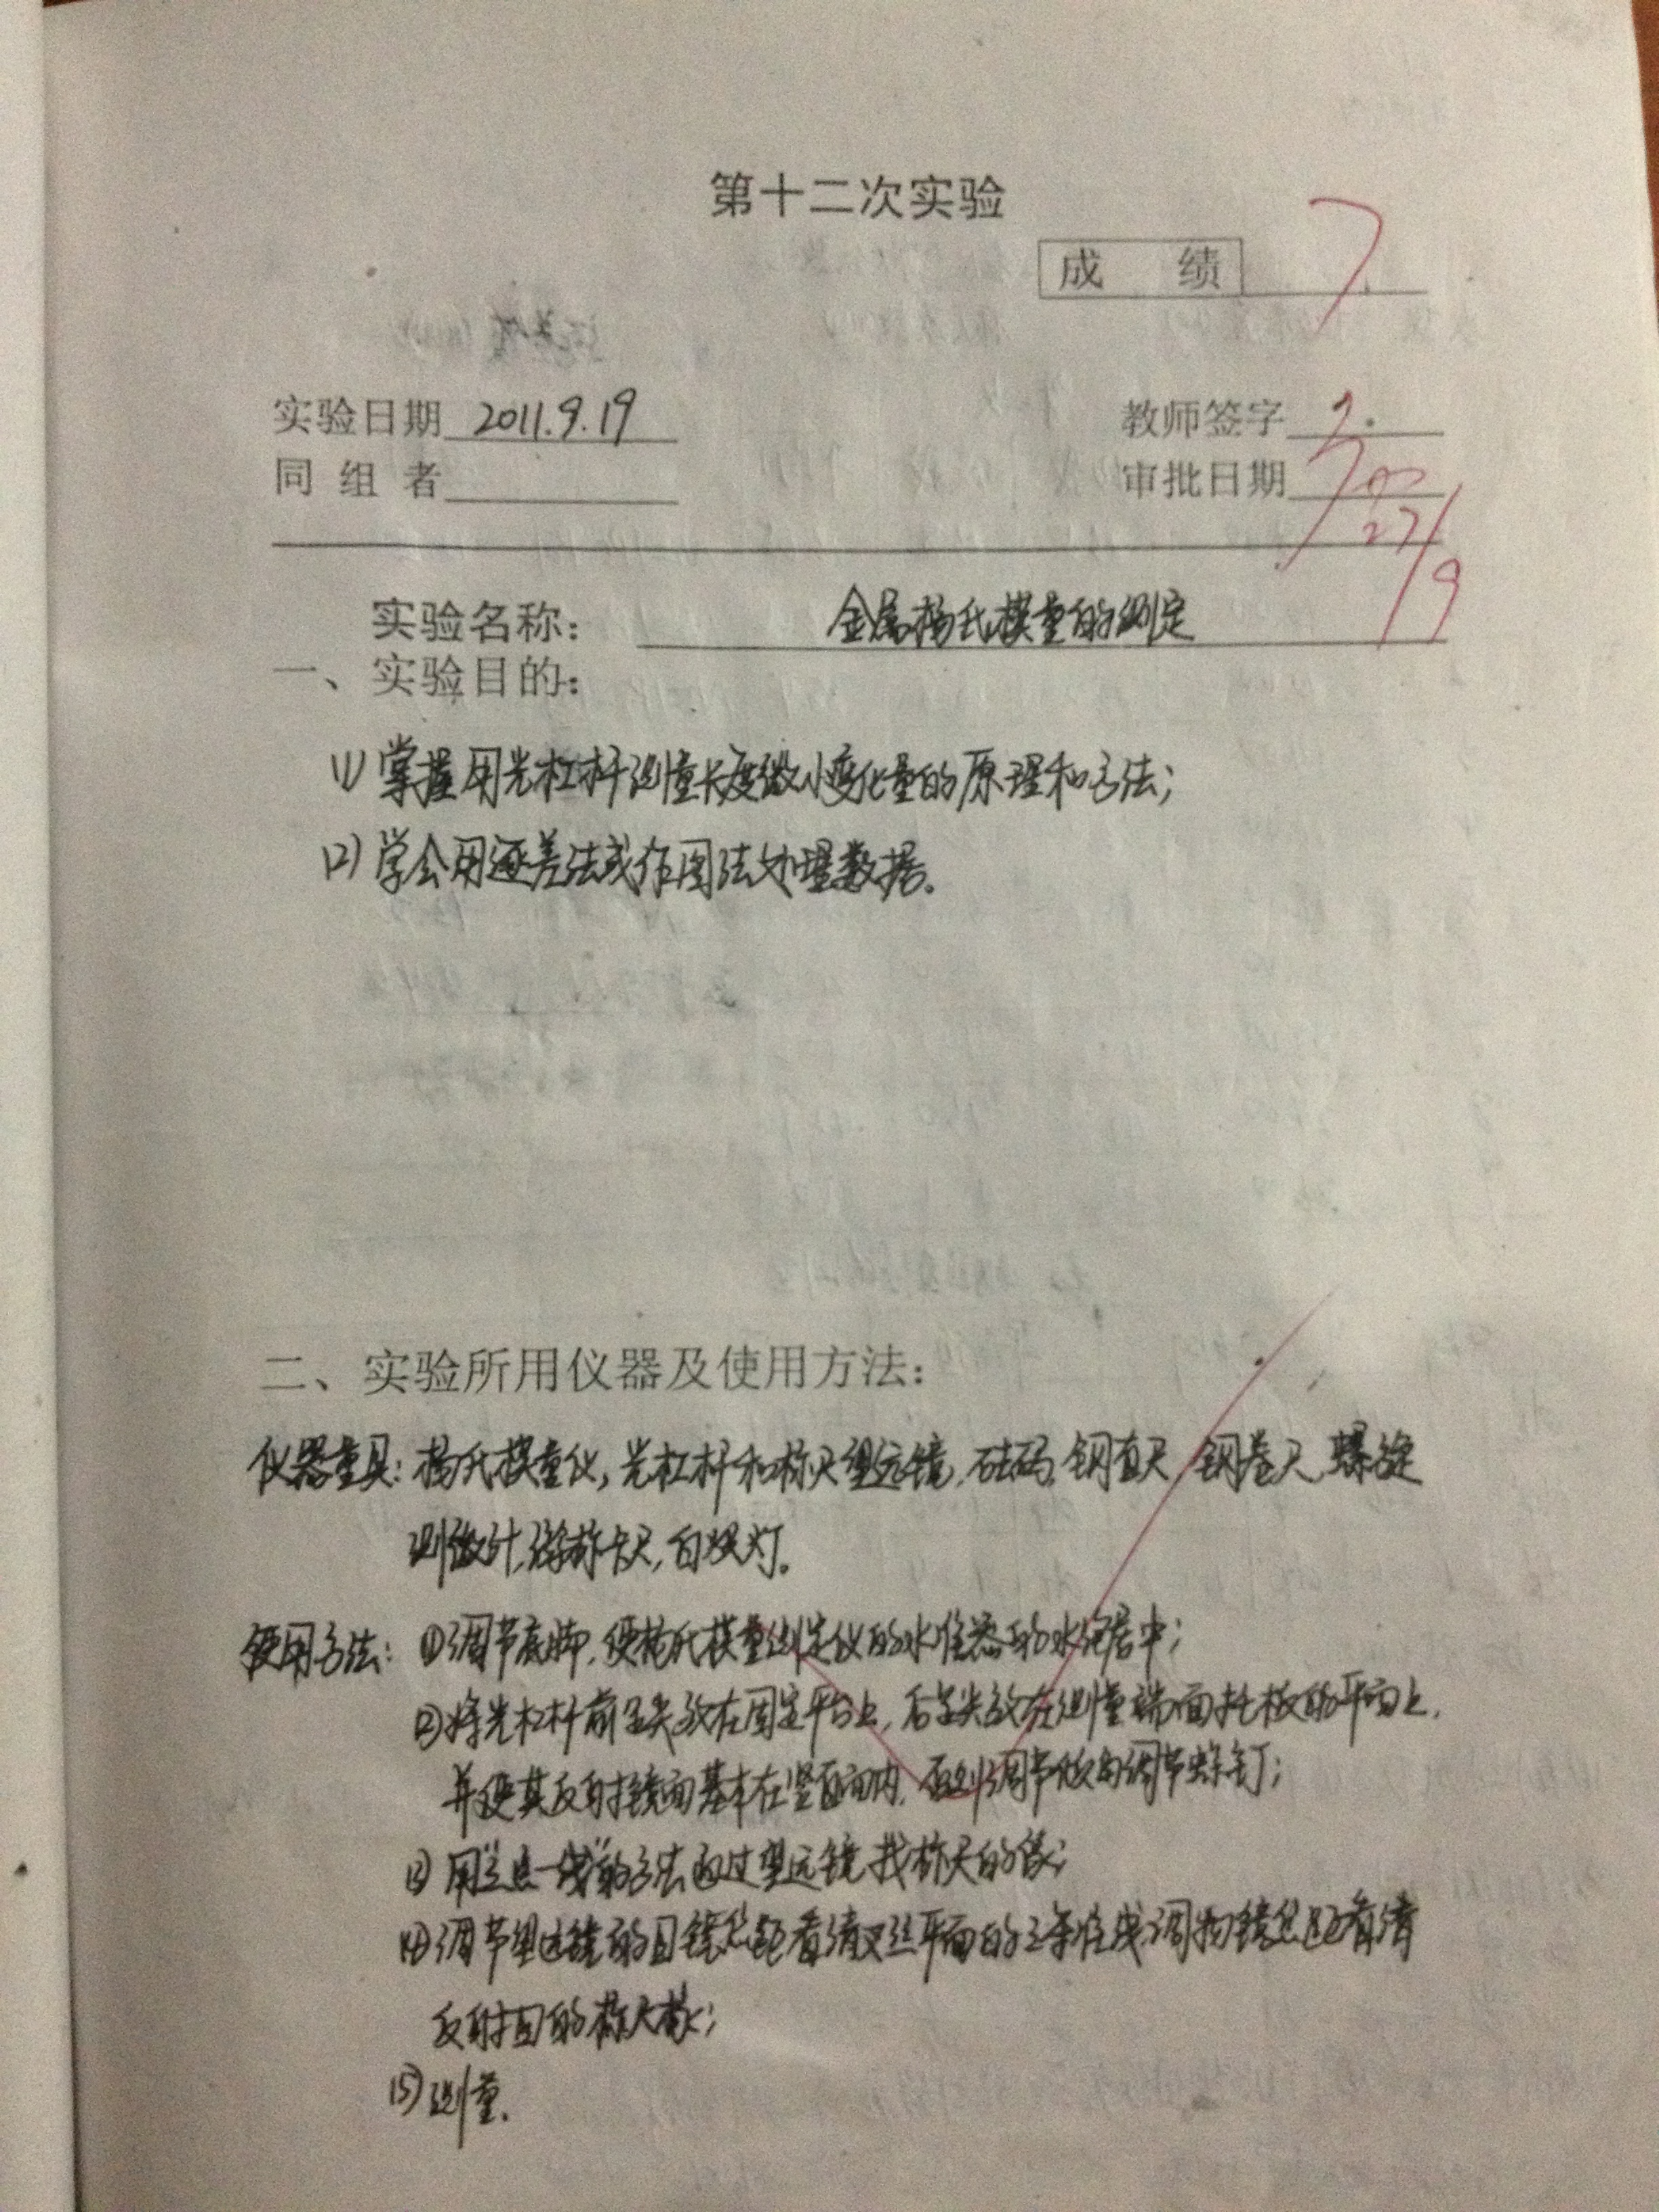 第十二次实验
成 绩 7.
实验日期 2011.9.19 教师签字
同 组 者 审批日期 27/9
实验名称： 金属杨氏模量的测定
一、实验目的：
(1) 掌握用光杠杆测量长度微小变化量的原理和方法；
(2) 学会用逐差法或作图法处理数据。
二、实验所用仪器及使用方法：
仪器量具：杨氏模量仪，光杠杆和标尺望远镜，砝码，钢直尺，钢卷尺，螺旋
测微计，游标卡尺，白炽灯。
使用方法：(1)调节底脚，使杨氏模量测定仪的水准器的水泡居中；
(2)将光杠杆前足尖放在固定平台上，后足尖放在测量端面托板的平面上，
并使其反射镜面基本在竖直面内，否则调节
(3) 用"三点一线"的方法通过望远镜找标尺的像；
(4)调节望远镜的目镜焦距看清叉丝平面的三条准线，调物镜焦距看清
反射回的标尺像；
(5)测量.